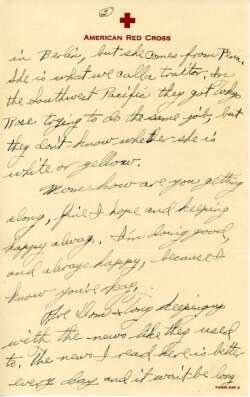 ②
AMERICAN RED CROSS
in Berlin, but she comes from Penn.
She is what we call a traitor. In
the Southwest Pacific they got Tokyo
Rose trying to do the same job, but
they don't know whether she is
white or yellow.
Mom how are you getting
along, fine I hope and keeping
happy always. I'm doing good,
and always happy, because I
know you're okay.
Are Dom & Tony keeping up
with the news like they used
to. The news I read here is better
every day and it won't be long